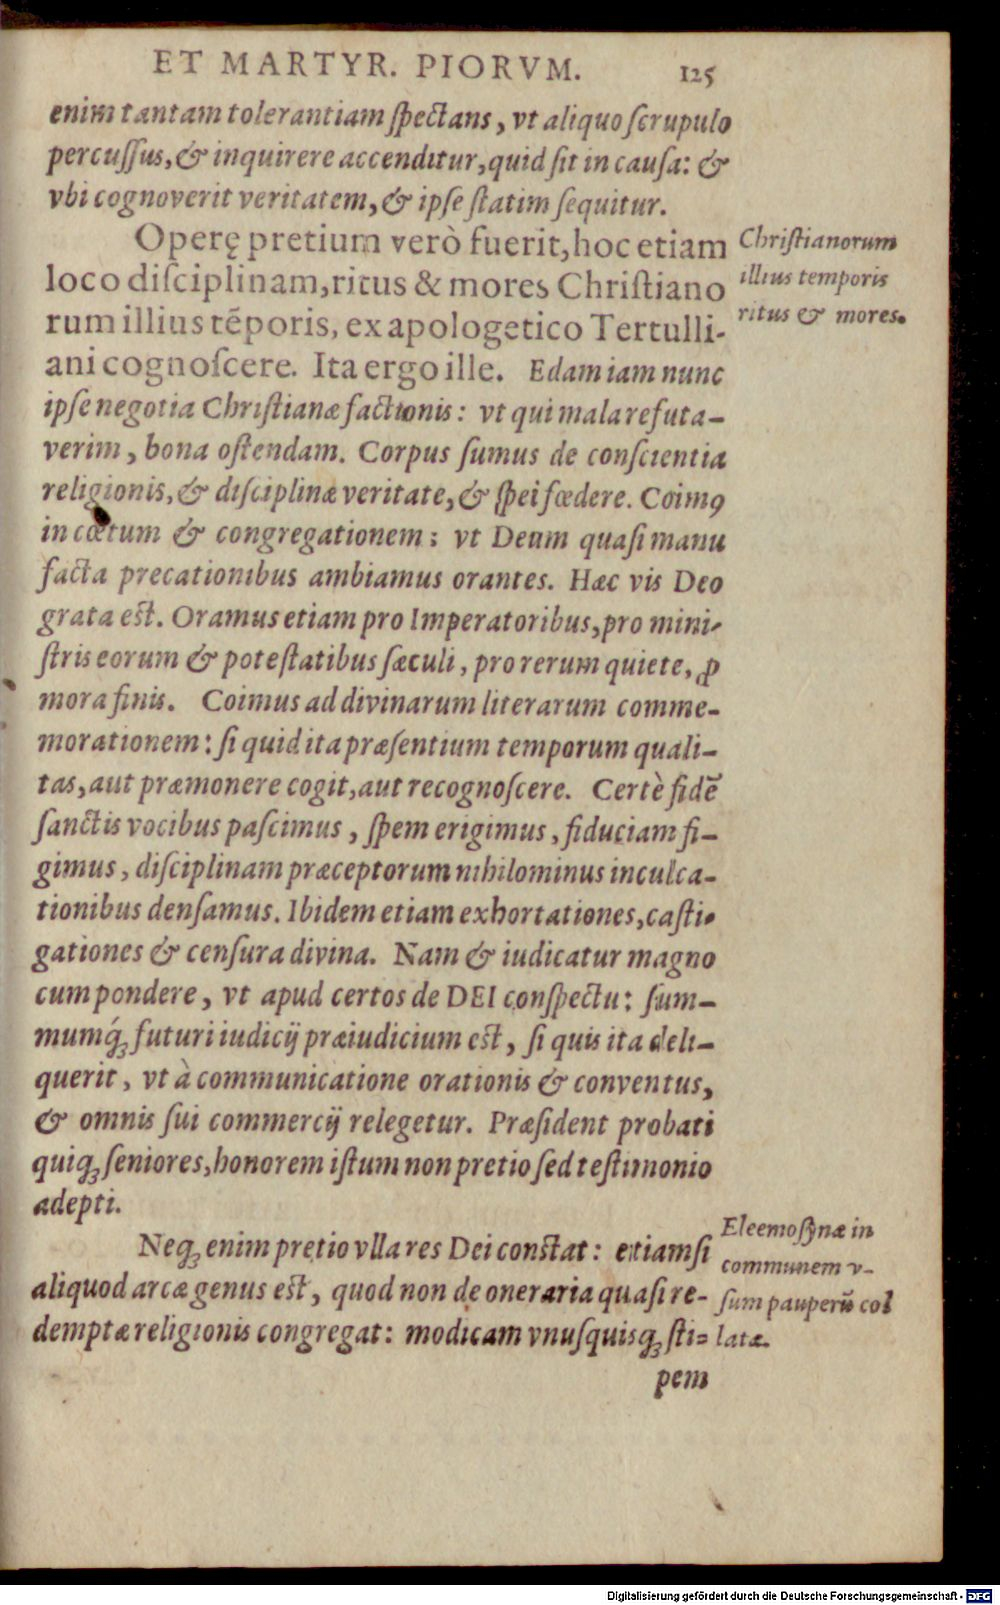 ET MARTYR. PIORVM. 125
enim tantam tolerantiam ſpectans, vt aliquo ſcrupulo
percuſſus, & inquirere accenditur, quid ſit in cauſa: &
vbi cognoverit veritatem, & ipſe ſtatim ſequitur.
Operę pretium verò fuerit, hoc etiam
loco diſciplinam, ritus & mores Chriſtiano
rum illius tẽporis, ex apologetico Tertulli-
ani cognoſcere. Ita ergo ille. Edam iam nunc
ipſe negotia Chriſtianæ factionis: vt qui mala refuta-
verim, bona oſtendam. Corpus ſumus de conſcientia
religionis, & diſciplinæ veritate, & ſpei fœdere. Coimꝰ
in cœtum & congregationem: vt Deum quaſi manu
facta precationibus ambiamus orantes. Hæc vis Deo
grata est. Oramus etiam pro Imperatoribus, pro mini-
ſtris eorum & poteſtatibus ſæculi, pro rerum quiete, ꝓ
mora finis. Coimus ad divinarum literarum comme-
morationem: ſi quid ita præſentium temporum quali-
tas, aut præmonere cogit, aut recognoſcere. Certè fidẽ
ſanctis vocibus paſcimus, ſpem erigimus, fiduciam fi-
gimus, diſciplinam præceptorum nihilominus inculca-
tionibus denſamus. Ibidem etiam exhortationes, caſti-
gationes & cenſura divina. Nam & iudicatur magno
cum pondere, vt apud certos de DEI conſpectu: ſum-
mumq́ꝫ futuri iudicij præiudicium est, ſi quis ita deli-
querit, vt à communicatione orationis & conventus,
& omnis ſui commercij relegetur. Præſident probati
quiqꝫ ſeniores, honorem iſtum non pretio ſed teſtimonio
adepti.
Neqꝫ enim pretio vlla res Dei constat: etiamſi
aliquod arcæ genus est, quod non de oneraria quaſi re-
demptæ religionis congregat: modicam vnuſquisqꝫ ſti-
pem
Chriſtianorum
illius temporis
ritus & mores.
Eleemoſynæ in
communem v-
ſum pauperũ col
latæ.
Digitalisierung gefördert durch die Deutsche Forschungsgemeinschaft - DFG